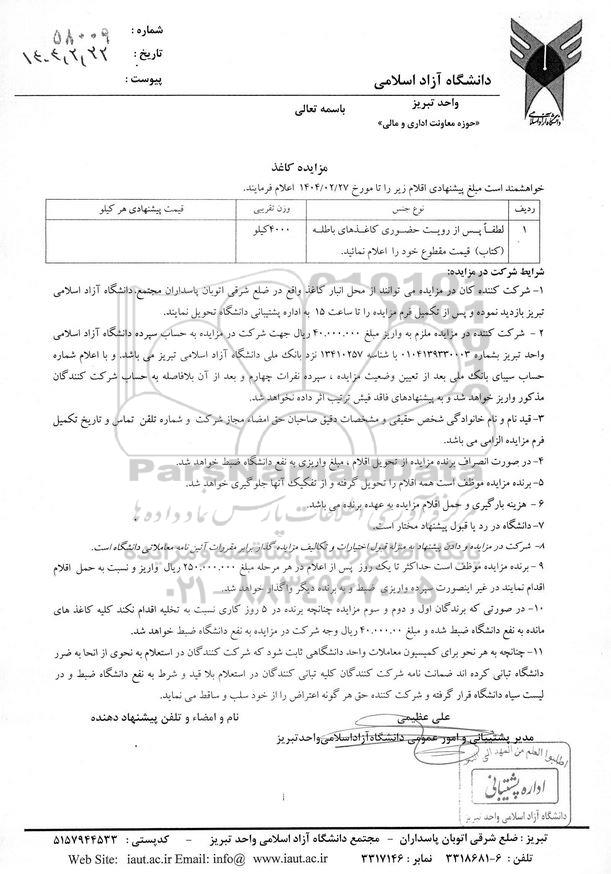 شماره : ۵۸۰۰۹
تاریخ : ۱۴۰۴٫۲٫۲۲
پیوست :
دانشگاه آزاد اسلامی
واحد تبریز
«حوزه معاونت اداری و مالی»
باسمه تعالی
مزایده کاغذ
خواهشمند است مبلغ پیشنهادی اقلام زیر را تا مورخ ۱۴۰۴/۰۲/۲۷ اعلام فرمایند.
ردیف نوع جنس وزن تقریبی قیمت پیشنهادی هر کیلو
۱ لطفاً پس از رویت حضوری کاغذهای باطله ۴۰۰۰کیلو
(کتاب) قیمت مقطوع خود را اعلام نمائید.
شرایط شرکت در مزایده:
۱- شرکت کننده کان در مزایده می توانند از محل انبار کاغذ واقع در ضلع شرقی اتوبان پاسداران مجتمع دانشگاه آزاد اسلامی
تبریز بازدید نموده و پس از تکمیل فرم مزایده را تا ساعت ۱۵ به اداره پشتیبانی دانشگاه تحویل نمایند.
۲ - شرکت کننده در مزایده ملزم به واریز مبلغ ۴۰.۰۰۰.۰۰۰ ریال جهت شرکت در مزایده به حساب سپرده دانشگاه آزاد اسلامی
واحد تبریز بشماره ۰۱۰۴۱۳۹۳۳۰۰۰۳ با شناسه ۱۳۴۱۰۲۵۷ نزد بانک ملی دانشگاه آزاد اسلامی تبریز می باشد. و با اعلام شماره
حساب سیبای بانک ملی بعد از تعیین وضعیت مزایده ، سپرده نفرات چهارم و بعد از آن بلافاصله به حساب شرکت کنندگان
مذکور واریز خواهد شد و به پیشنهادهای فاقد فیش ترتیب اثر داده نخواهد شد.
۳-قید نام و نام خانوادگی شخص حقیقی و مشخصات دقیق صاحبان حق امضاء مجاز شرکت و شماره تلفن تماس و تاریخ تکمیل
فرم مزایده الزامی می باشد.
۴-در صورت انصراف برنده مزایده از تحویل اقلام ، مبلغ واریزی به نفع دانشگاه ضبط خواهد شد.
۵- برنده مزایده موظف است همه اقلام را تحویل گرفته و از تفکیک آنها جلوگیری خواهد شد.
۶ - هزینه بارگیری و حمل اقلام مزایده به عهده برنده می باشد.
۷-دانشگاه در رد یا قبول پیشنهاد مختار است.
۸- شرکت در مزایده و دادن پیشنهاد به منزله قبول اختیارات و تکالیف مزایده گذار برابر مقررات آئین نامه معاملاتی دانشگاه است.
۹ - برنده مزایده موظف است حداکثر تا یک روز پس از اعلام در هر مرحله مبلغ ۲۵۰.۰۰۰.۰۰۰ ریال واریز و نسبت به حمل اقلام
اقدام نمایند در غیر اینصورت سپرده واریزی ضبط و به برنده دیگر واگذار خواهد شد.
۱۰- در صورتی که برندگان اول و دوم و سوم مزایده چنانچه برنده در ۵ روز کاری نسبت به تخلیه اقدام نکند کلیه کاغذ های
مانده به نفع دانشگاه ضبط شده و مبلغ ۴۰.۰۰۰.۰۰ ریال وجه شرکت در مزایده به نفع دانشگاه ضبط خواهد شد.
۱۱- چنانچه به هر نحو برای کمیسیون معاملات واحد دانشگاهی ثابت شود که شرکت کنندگان در استعلام به نحوی از انحا به ضرر
دانشگاه تبانی کرده اند ضمانت نامه شرکت کنندگان کلیه تبانی کنندگان در استعلام بلا قید و شرط به نفع دانشگاه ضبط و در
لیست سیاه دانشگاه قرار گرفته و شرکت کننده حق هر گونه اعتراض را از خود سلب و ساقط می نماید.
علی عظیمی نام و امضاء و تلفن پیشنهاد دهنده
مدیر پشتیبانی و امور عمومی دانشگاه آزاد اسلامی واحد تبریز
اطلبوا العلم من المهد الی
اداره پشتیبانی
دانشگاه آزاد اسلامی واحد تبریز
۱
تبریز : ضلع شرقی اتوبان پاسداران - مجتمع دانشگاه آزاد اسلامی واحد تبریز - کدپستی : ۵۱۵۷۹۴۴۵۳۳
تلفن : ۶-۳۳۱۸۶۸۱ نمابر : ۳۳۱۷۱۴۶ Web Site: iaut.ac.ir Email: info@ www.iaut.ac.ir